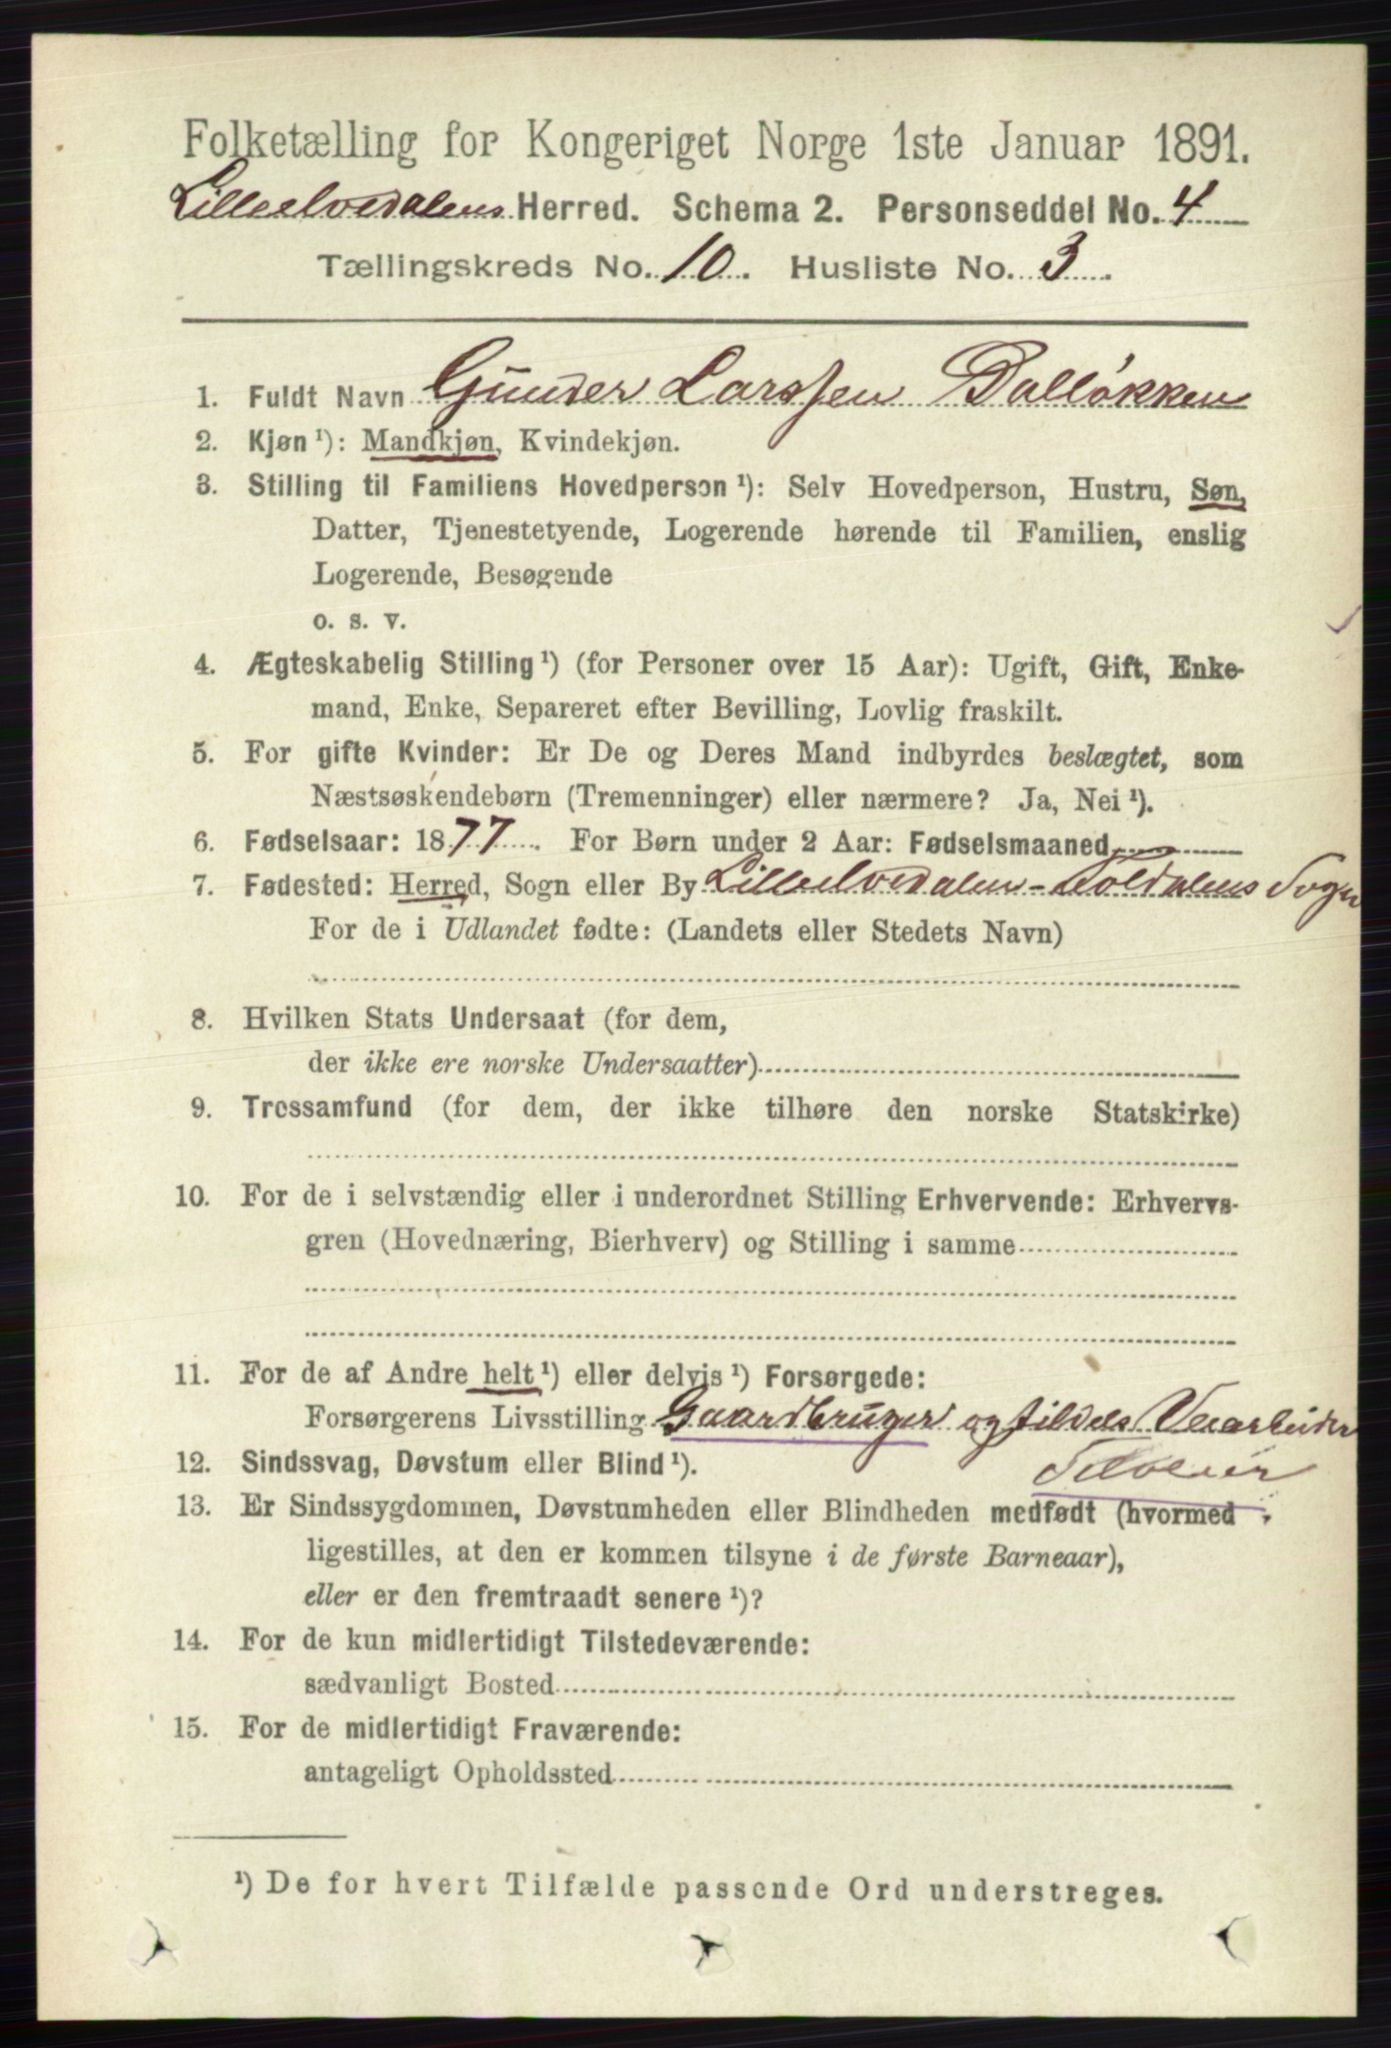 Folketælling for Kongeriget Norge 1ste Januar 1891.
Lilleelvedalens Herred. Schema 2. Personseddel No. 4
Tællingskreds No. 10. Husliste No. 3.
1. Fuldt Navn Gunder Larssen Balløkken
2. Kjøn ¹): Mandkjøn, Kvindekjøn.
3. Stilling til Familiens Hovedperson ¹): Selv Hovedperson, Hustru, Søn,
Datter, Tjenestetyende, Logerende hørende til Familien, enslig
Logerende, Besøgende
o. s. v.
4. Ægteskabelig Stilling ¹) (for Personer over 15 Aar): Ugift, Gift, Enke-
mand, Enke, Separeret efter Bevilling, Lovlig fraskilt.
5. For gifte Kvinder: Er De og Deres Mand indbyrdes beslægtet, som
Næstsøskendebørn (Tremenninger) eller nærmere? Ja, Nei ¹).
6. Fødselsaar: 1877. For Børn under 2 Aar: Fødselsmaaned
7. Fødested: Herred, Sogn eller By Lilleelvedalen - Soldalens Sogn
For de i Udlandet fødte: (Landets eller Stedets Navn)
8. Hvilken Stats Undersaat (for dem,
der ikke ere norske Undersaatter)
9. Trossamfund (for dem, der ikke tilhøre den norske Statskirke)
10. For de i selvstændig eller i underordnet Stilling Erhvervende: Erhvervs-
gren (Hovednæring, Bierhverv) og Stilling i samme
11. For de af Andre helt ¹) eller delvis ¹) Forsørgede:
Forsørgerens Livsstilling Gaardbruger og tildels Veiarbeider
Selveier
12. Sindssvag, Døvstum eller Blind ¹).
13. Er Sindssygdommen, Døvstumheden eller Blindheden medfødt (hvormed
ligestilles, at den er kommen tilsyne i de første Barneaar),
eller er den fremtraadt senere ¹)?
14. For de kun midlertidigt Tilstedeværende:
sædvanligt Bosted
15. For de midlertidigt Fraværende:
antageligt Opholdssted
¹) De for hvert Tilfælde passende Ord understreges.